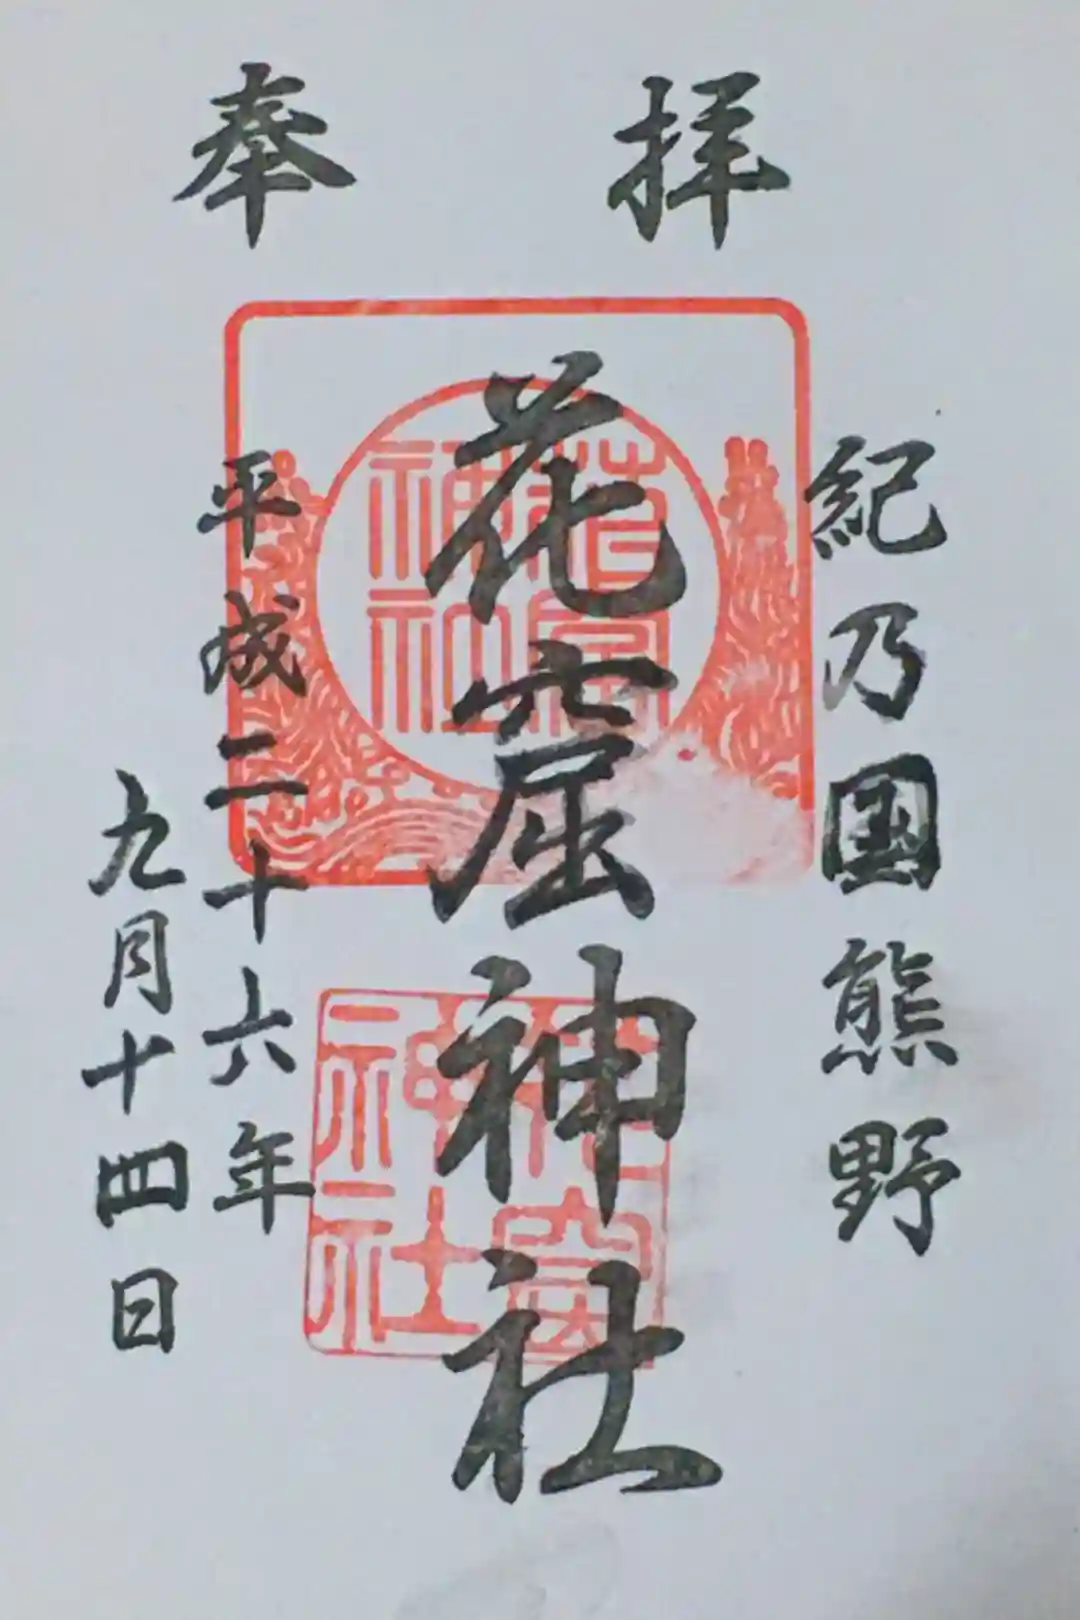 奉拝
紀乃国熊野
花窟神社
平成二十六年
九月十四日
花窟
神社
花窟
神社